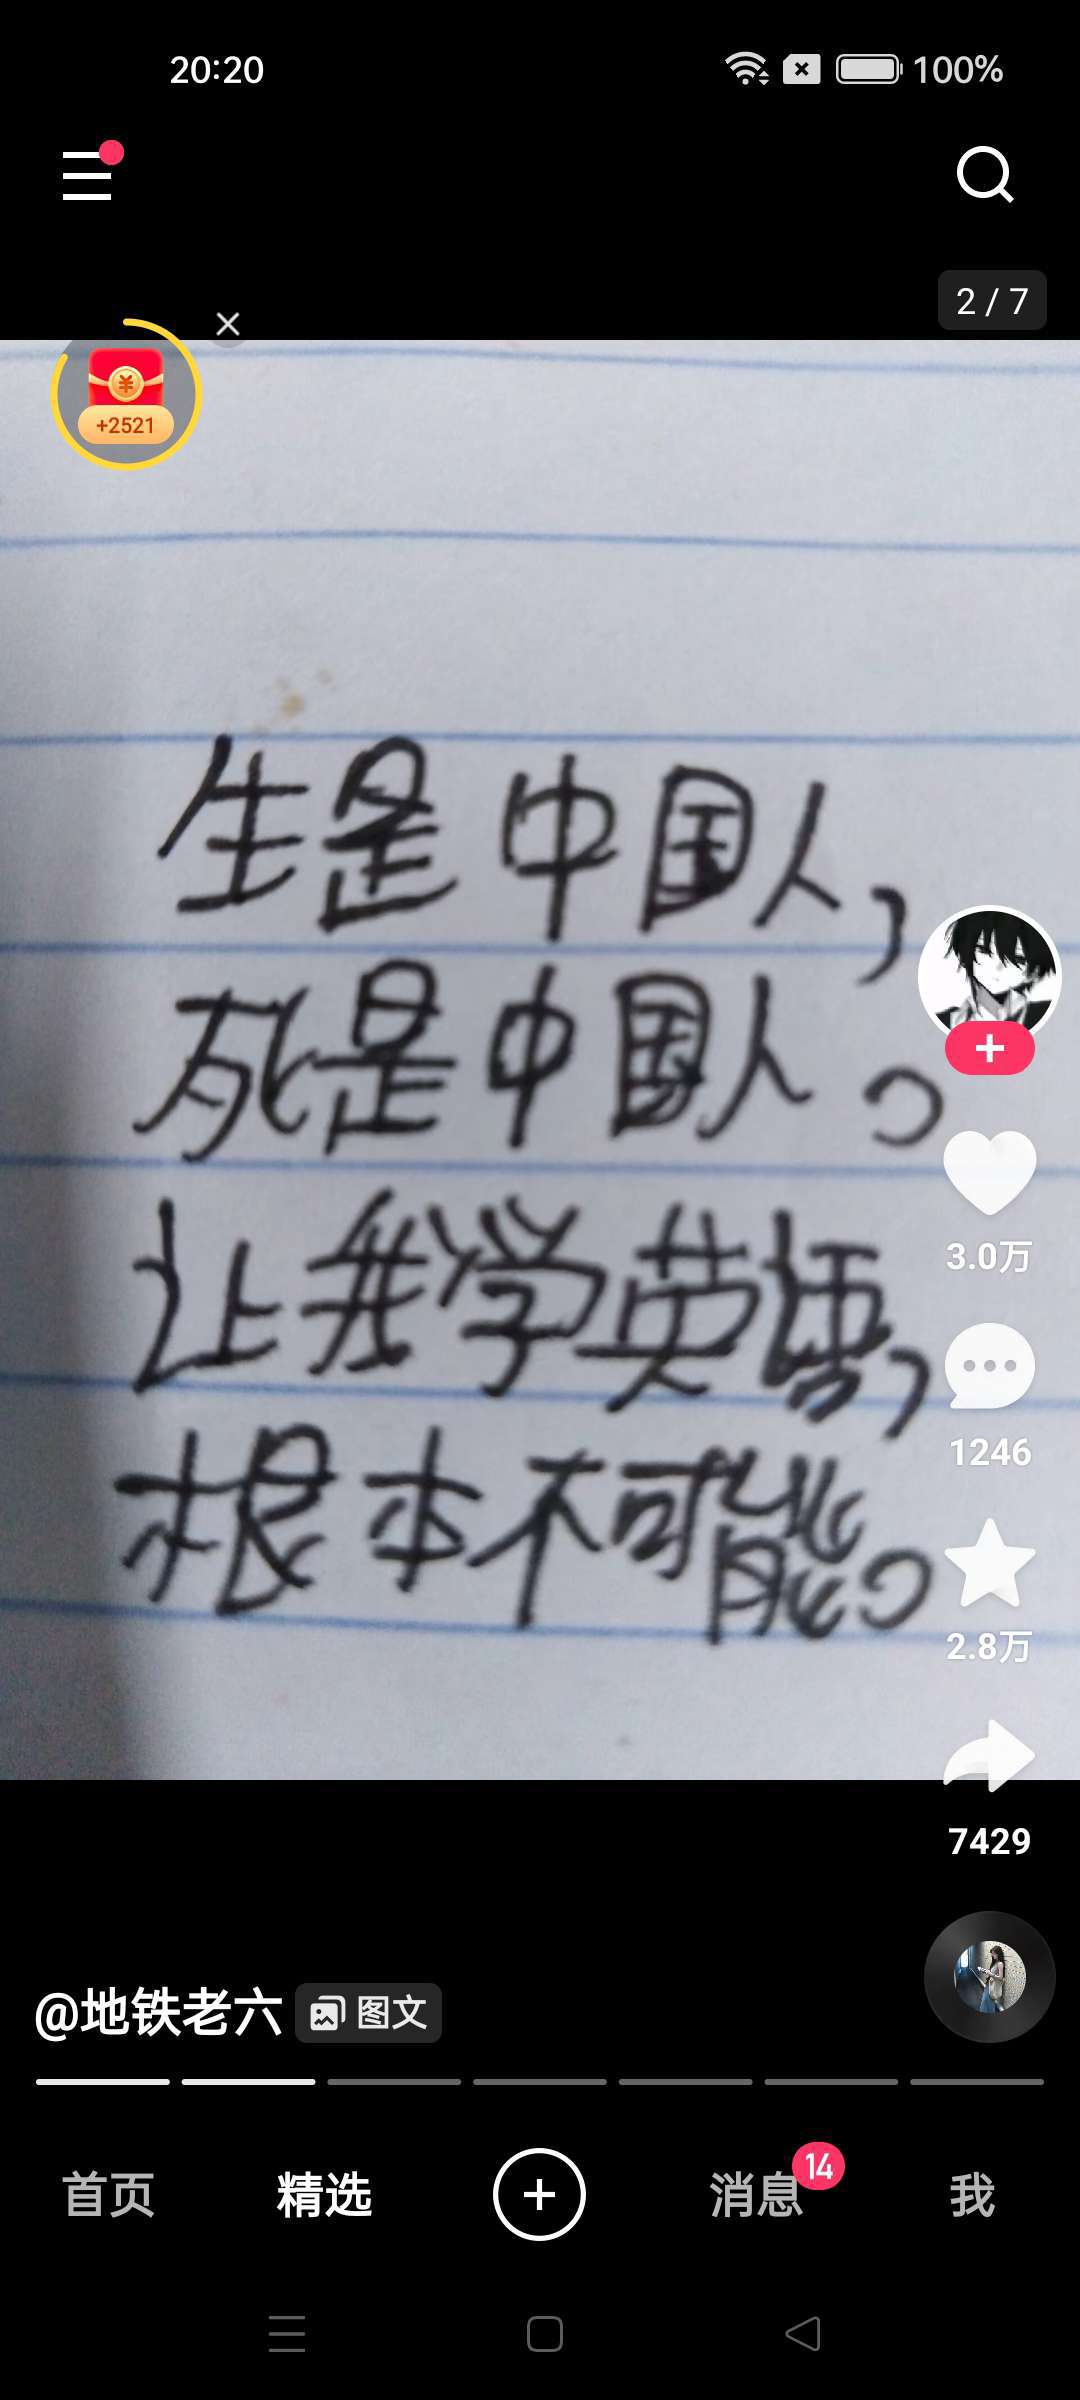 20:20
100%
2 / 7
+2521
生是中国人,
死是中国人。
让我学英语,
根本不可能。
3.0万
1246
2.8万
7429
@地铁老六 图文
首页 精选 消息 14 我